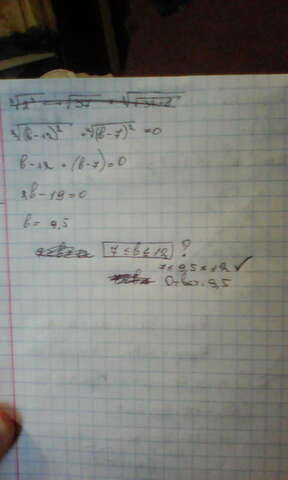 √(b-12)² + √(b-7)² = 0
b-12 + (b-7) = 0
2b-19=0
b = 9,5
7 ≤ b ≤ 12 ?
7 ≤ 9,5 ≤ 12 ✓
Ответ: 9,5